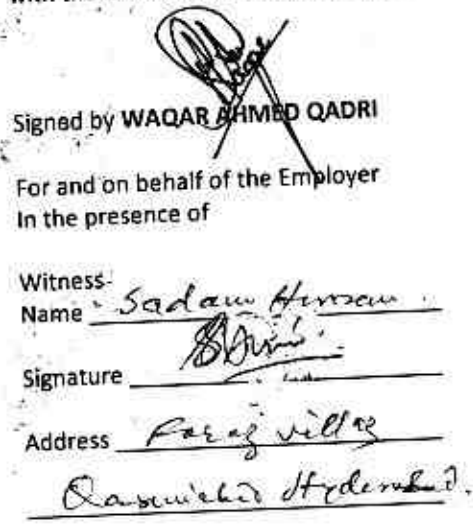 Signed by WAQAR AHMED QADRI
For and on behalf of the Employer
In the presence of
Witness-
Name Sadam Hussain
Signature
Address Faraz villaz
Qasimabad Hyderabad.